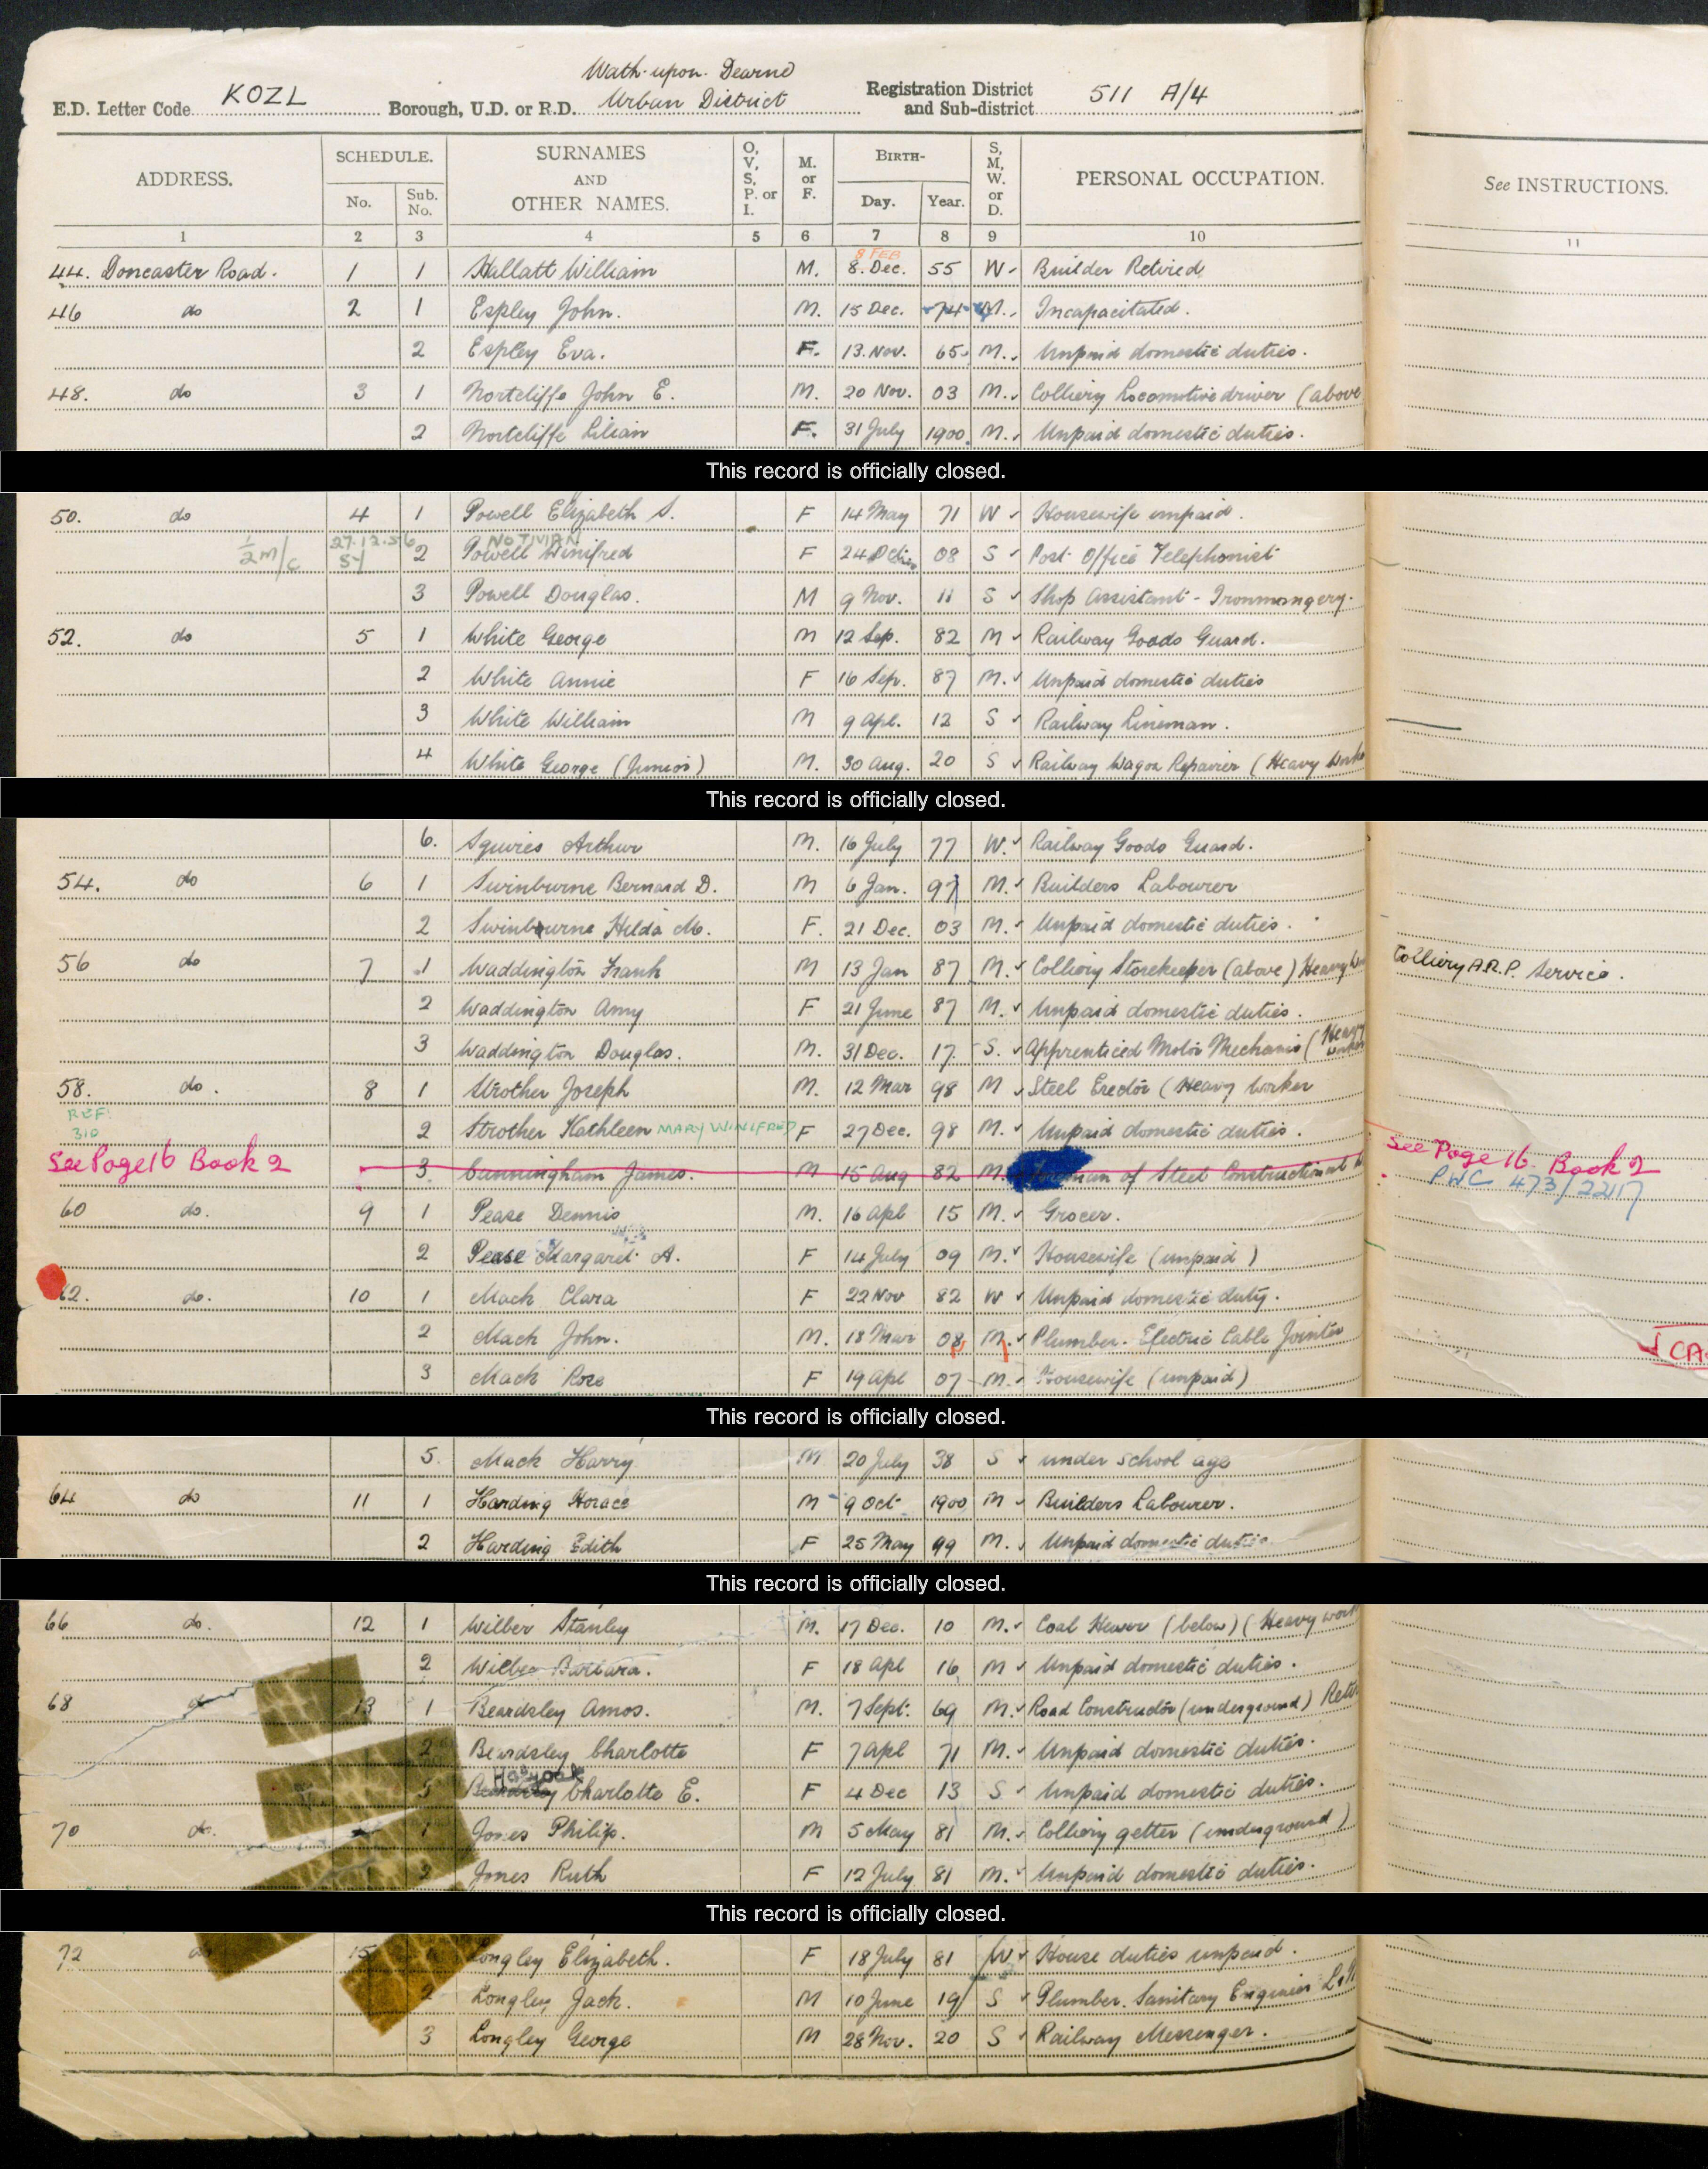 Wath-upon-Dearne
E.D. Letter Code KOZL Borough, U.D. or R.D. Urban District Registration District and Sub-district 511 A/4
ADDRESS. SCHEDULE. No. Sub. No. SURNAMES AND OTHER NAMES. O, V, S, P. or I. M. or F. BIRTH- Day. Year. S, M, W. or D. PERSONAL OCCUPATION. See INSTRUCTIONS.
1 2 3 4 5 6 7 8 9 10 11
8 FEB
44. Doncaster Road. 1 1 Hallatt William M. 8. Dec. 55 W Builder Retired
46 do 2 1 Espley John. M. 15 Dec. 74 M. Incapacitated.
2 Espley Eva. F. 13. Nov. 65 M. Unpaid domestic duties.
48. do 3 1 Nortcliffe John E. M. 20 Nov. 03 M. Colliery Locomotive driver (above
2 Nortcliffe Lilian F. 31 July 1900 M. Unpaid domestic duties.
This record is officially closed.
50. do 4 1 Powell Elizabeth S. F 14 May 71 W Housewife unpaid.
1/2 m/c 27.12.56 SY 2 Powell Winifred F 24 Oct 08 S Post Office Telephonist
3 Powell Douglas. M 9 Nov. 11 S Shop Assistant - Ironmongery.
52. do 5 1 White George M 12 Sep. 82 M Railway Goods Guard.
2 White Annie F 16 Sep. 87 M. Unpaid domestic duties
3 White William M 9 Apl. 12 S Railway Lineman.
4 White George (Junior) M. 30 Aug. 20 S Railway Wagon Repairer (Heavy Worke
This record is officially closed.
6. Squires Arthur M. 16 July 77 W. Railway Goods Guard.
54. do 6 1 Swinburne Bernard D. M 6 Jan. 97 M. Builders Labourer
2 Swinburne Hilda M. F. 21 Dec. 03 M. Unpaid domestic duties.
56 do 7 1 Waddington Frank M 13 Jan 87 M. Colliery Storekeeper (above) Heavy W Colliery A.R.P. Service.
2 Waddington Amy F 21 June 87 M. Unpaid domestic duties.
3 Waddington Douglas. M. 31 Dec. 17. S. Apprenticed Motor Mechanic (Heavy Worker
58. do. 8 1 Strother Joseph M. 12 Mar 98 M Steel Erector (Heavy Worker
REF 310 2 Strother Kathleen MARY WINIFRED F 27 Dec. 98 M. Unpaid domestic duties.
See Page 16 Book 2 3 Cunningham James. M 15 Aug 82 M. Foreman of Steel Constructional W See Page 16 Book 2
PWC 473/2217
60 do. 9 1 Pease Dennis M. 16 Apl 15 M. Grocer.
2 Pease Margaret A. F 14 July 09 M. Housewife (unpaid)
62. do. 10 1 Mack Clara F 22 Nov 82 W Unpaid domestic duty.
2 Mack John. M. 18 Mar 08 M. Plumber. Electric Cable Jointer
CA
3 Mack Rose F 19 Apl 07 M. Housewife (unpaid)
This record is officially closed.
5. Mack Harry M 20 July 38 S under school age
64 do 11 1 Harding Horace M 9 Oct 1900 M Builders Labourer.
2 Harding Edith F 25 May 99 M. Unpaid domestic duties
This record is officially closed.
66 do. 12 1 Wilber Stanley M. 17 Dec. 10 M. Coal Hewer (below) (Heavy work
2 Wilber Barbara. F 18 Apl 16 M Unpaid domestic duties.
68 do 13 1 Beardsley Amos. M. 7 Sept. 69 M. Road Constructor (underground) Reti
2 Beardsley Charlotte F 7 Apl 71 M. Unpaid domestic duties.
3 Beardsley Charlotte E. F 4 Dec 13 S Unpaid domestic duties.
70 do. 1 Jones Philip. M 5 May 81 M. Colliery getter (underground)
2 Jones Ruth F 12 July 81 M. Unpaid domestic duties.
This record is officially closed.
72 do 15 Longley Elizabeth. F 18 July 81 W House duties unpaid.
2 Longley Jack. M 10 June 19 S Plumber. Sanitary Engineer
3 Longley George M 28 Nov. 20 S Railway Messenger.